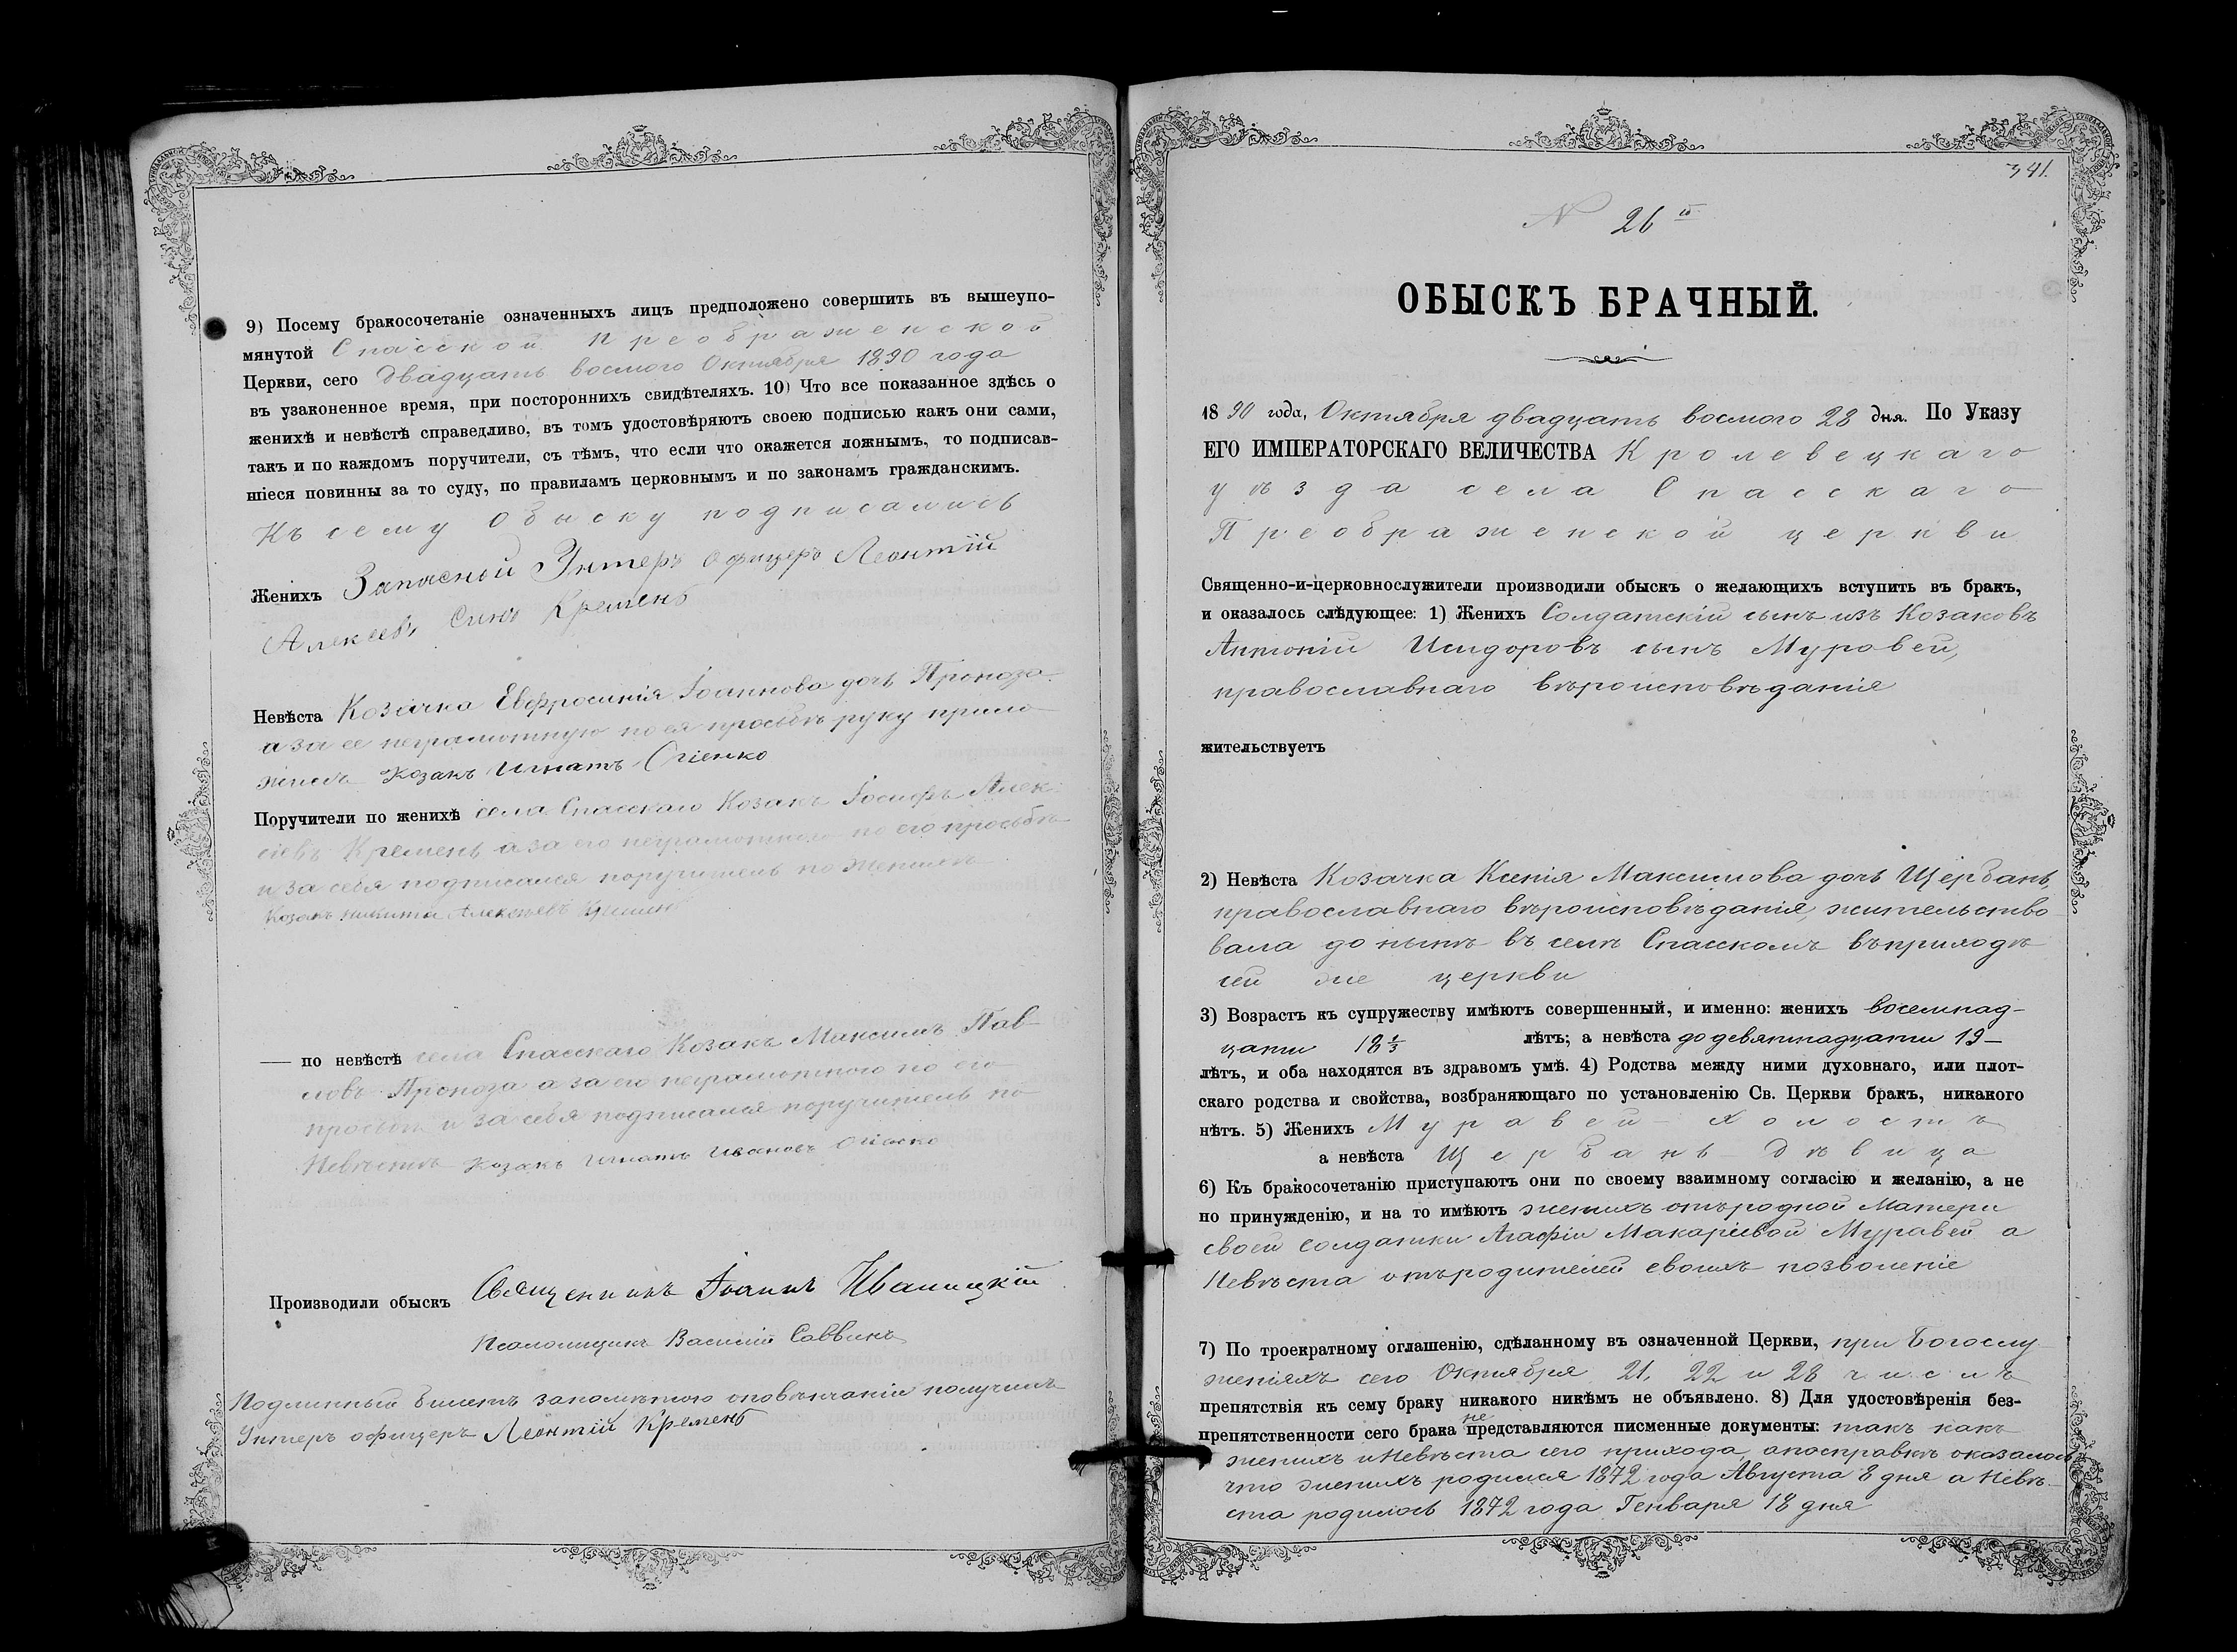 9) Посему бракосочетаніе означенныхъ лицъ предположено совершить въ вышеупо-
мянутой Спасской Преображенской
Церкви, сего двадцать восмого Октября 1890 года
въ узаконенное время, при постороннихъ свидѣтеляхъ. 10) Что все показанное здѣсь о
женихѣ и невѣстѣ справедливо, въ томъ удостовѣряютъ своею подписью какъ они сами,
такъ и по каждомъ поручители, съ тѣмъ, что если что окажется ложнымъ, то подписав-
шіеся повинны за то суду, по правиламъ церковнымъ и по законамъ гражданскимъ.
Къ сему обыску подписались
Женихъ Запасной Унтеръ офицеръ Леонтій
Алексеевъ Синъ Кремень
Невѣста Козачка Евфросинія Іоаннова дочь Пропоза
а за ее неграмотную по ея просьбѣ руку прило
жилъ Козакъ Игнатъ Огіенко
Поручители по женихѣ села Спасскаго Козакъ Іосифъ Алек-
сіевъ Кремень а за его неграмотнаго по его просьбѣ
и за себя подписался поручитель по женихѣ
Козакъ Никита Алексѣевъ Кремень
— по невѣстѣ села Спасскаго Козакъ Максимъ Пав-
ловъ Пропоза а за его неграмотного по его
просьбѣ и за себя подписался поручитель по
Невѣстѣ Козакъ Игнатъ Ивановъ Огіенко
Производили обыскъ Священникъ Іоаннъ Иваницкій
Псаломщикъ Василій Саввинъ
Подлинный билетъ запомѣтою оповѣнчаніи получилъ
Унтеръ офицеръ Леонтій Кремень
341.
N 26й
ОБЫСКЪ БРАЧНЫЙ.
1890 года, Октября двадцать восмого 28 дня. По Указу
ЕГО ИМПЕРАТОРСКАГО ВЕЛИЧЕСТВА Кролевецкаго
уѣзда села Спасскаго
Преображенской церкви
Священно-и-церковнослужители производили обыскъ о желающихъ вступить въ бракъ,
и оказалось слѣдующее: 1) Женихъ Солдатскій сынъ изъ Козаковъ
Антоній Исидоровъ сынъ Муровей,
православнаго вѣроисповѣданія
жительствуетъ
2) Невѣста Козачка Ксенія Максимова дочь Щербань,
православнаго вѣроисповѣданія, жительство
вала до нынѣ въ селѣ Спасскомъ въ приходѣ
сей же церкви
3) Возрастъ къ супружеству имѣютъ совершенный, и именно: женихъ восемнад-
цати 18 1/3 лѣтъ; а невѣста до девятнадцати 19—
лѣтъ, и оба находятся въ здравомъ умѣ. 4) Родства между ними духовнаго, или плот-
скаго родства и свойства, возбраняющаго по установленію Св. Церкви бракъ, никакого
нѣтъ. 5) Женихъ Муравей – холостъ
а невѣста Щербань – дѣвица
6) Къ бракосочетанію приступаютъ они по своему взаимному согласію и желанію, а не
по принужденію, и на то имѣютъ женихъ отъ родной Матери
своей солдатки Агафіи Макаріевой Муравей а
Невѣста отъ родителей своихъ позволеніе
7) По троекратному оглашенію, сдѣланному въ означенной Церкви, при Богослу
женіяхъ сего Октября 21, 22 и 28 числъ
препятствія къ сему браку никакого никѣмъ не объявлено. 8) Для удостовѣренія без-
препятственности сего брака не представляются писменные документы: такъ какъ
женихъ и Невѣста сего прихода, апосправкѣ оказалось
что женихъ родился 1872 года Августа 8 дня а Невѣ-
ста родилось 1872 года Генваря 18 дня